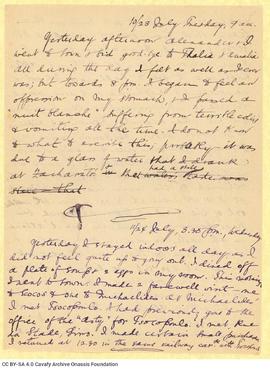 10/23 July, Tuesday, 9 a.m.
Yesterday afternoon Alexander & I
went to town & bid good-bye to Thalia & Amalia
all during the day I felt as well as I ever
was; but towards 8 p.m. I began to feel an
oppression on my stomach, & I passed a
"nuit blanche" suffering from terrible
& vomiting all the time. I do not know
to what to ascribe this, probably it was
due to a glass of water that I drank
at Zacharato's
that
11/24 July, 3.30 p.m., Wednesday
Yesterday I stayed indoors all day as I
did not feel quite up to going out. I dined off
a plate of soup & 2 eggs in my room. This morning
I went to town; I made a farewell visit
& one to Michaelides. At Michaelides'
I met Tsocopoulo. I had previously gone to the
office of the "Asty" for Tsocopoulo. I met
in Stade Str. I made certain small purchases.
I returned at 12.30 in the same railway car with
CC BY-SA 4.0 Cavafy Archive Onassis Foundation